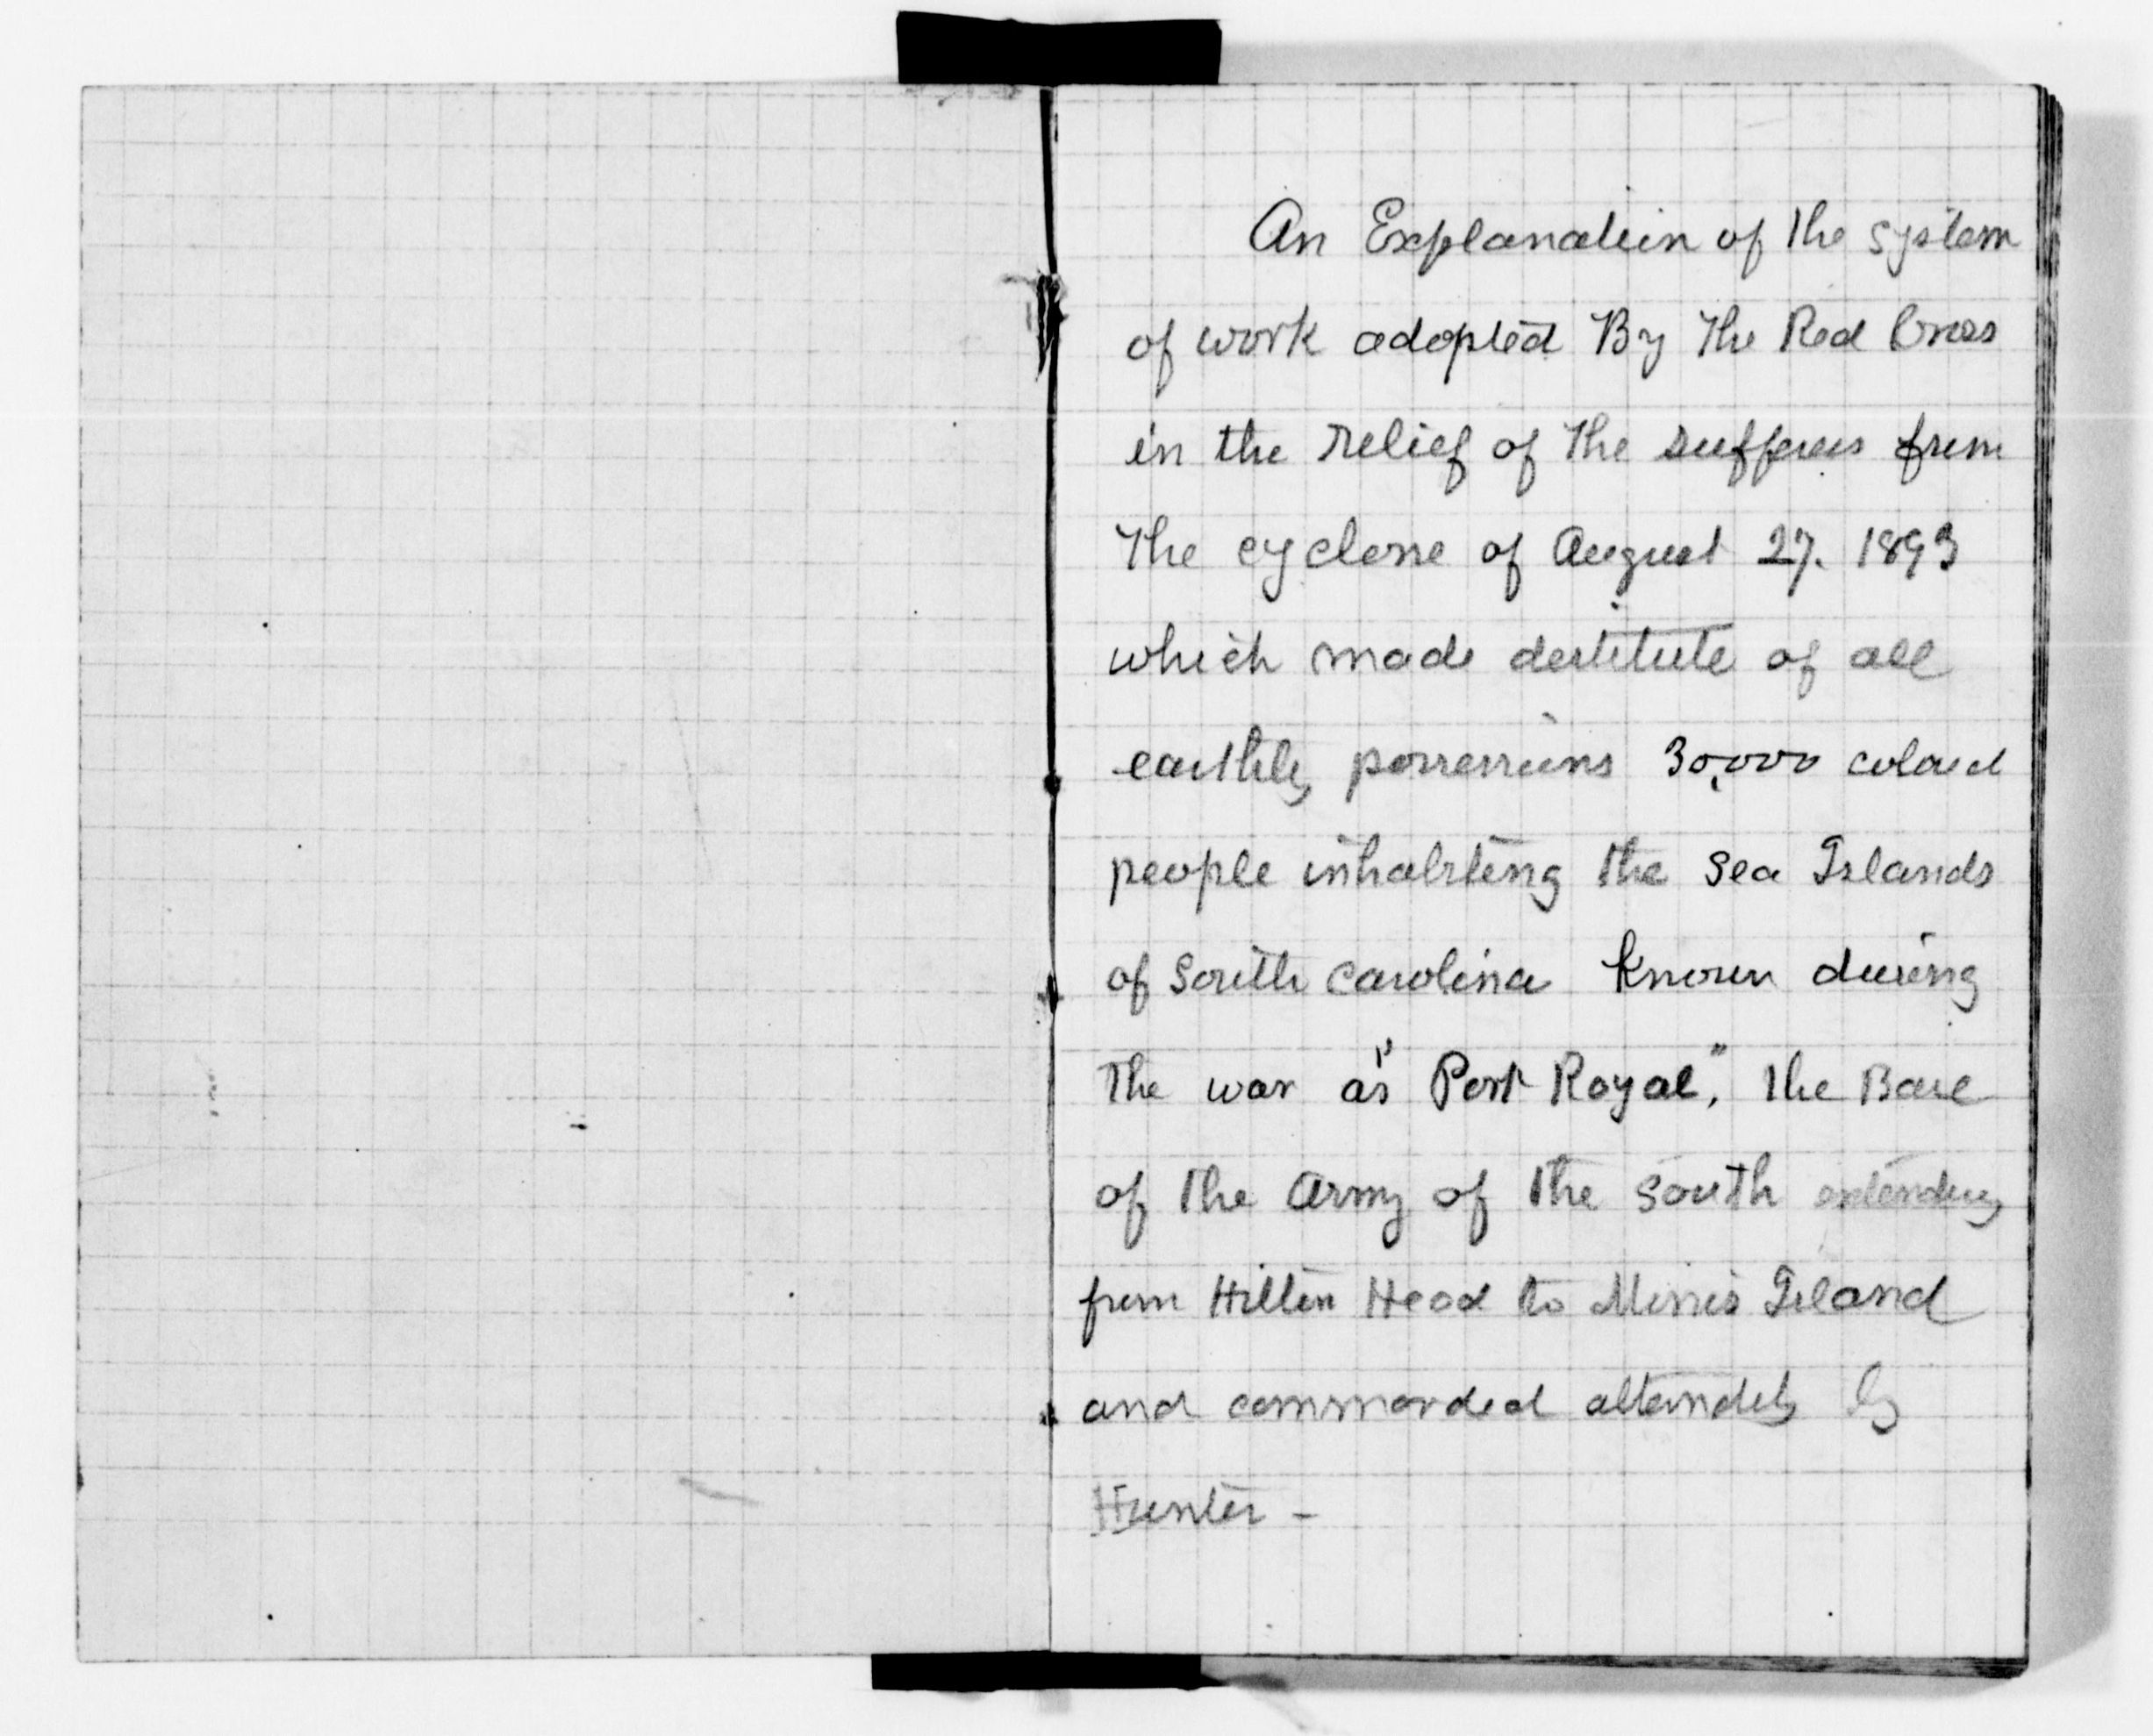 An Explanation of the system
of work adopted By the Red Cross
in the relief of the sufferers from
the cyclone of August 27. 1893
which made destitute of all
earthly possessions 30,000 colored
people inhabiting the Sea Islands
of South Carolina known during
the war as "Port Royal", the Base
of the Army of the South extending
from Hilton Head to Morris Island
and commanded alternately by
Hunter -